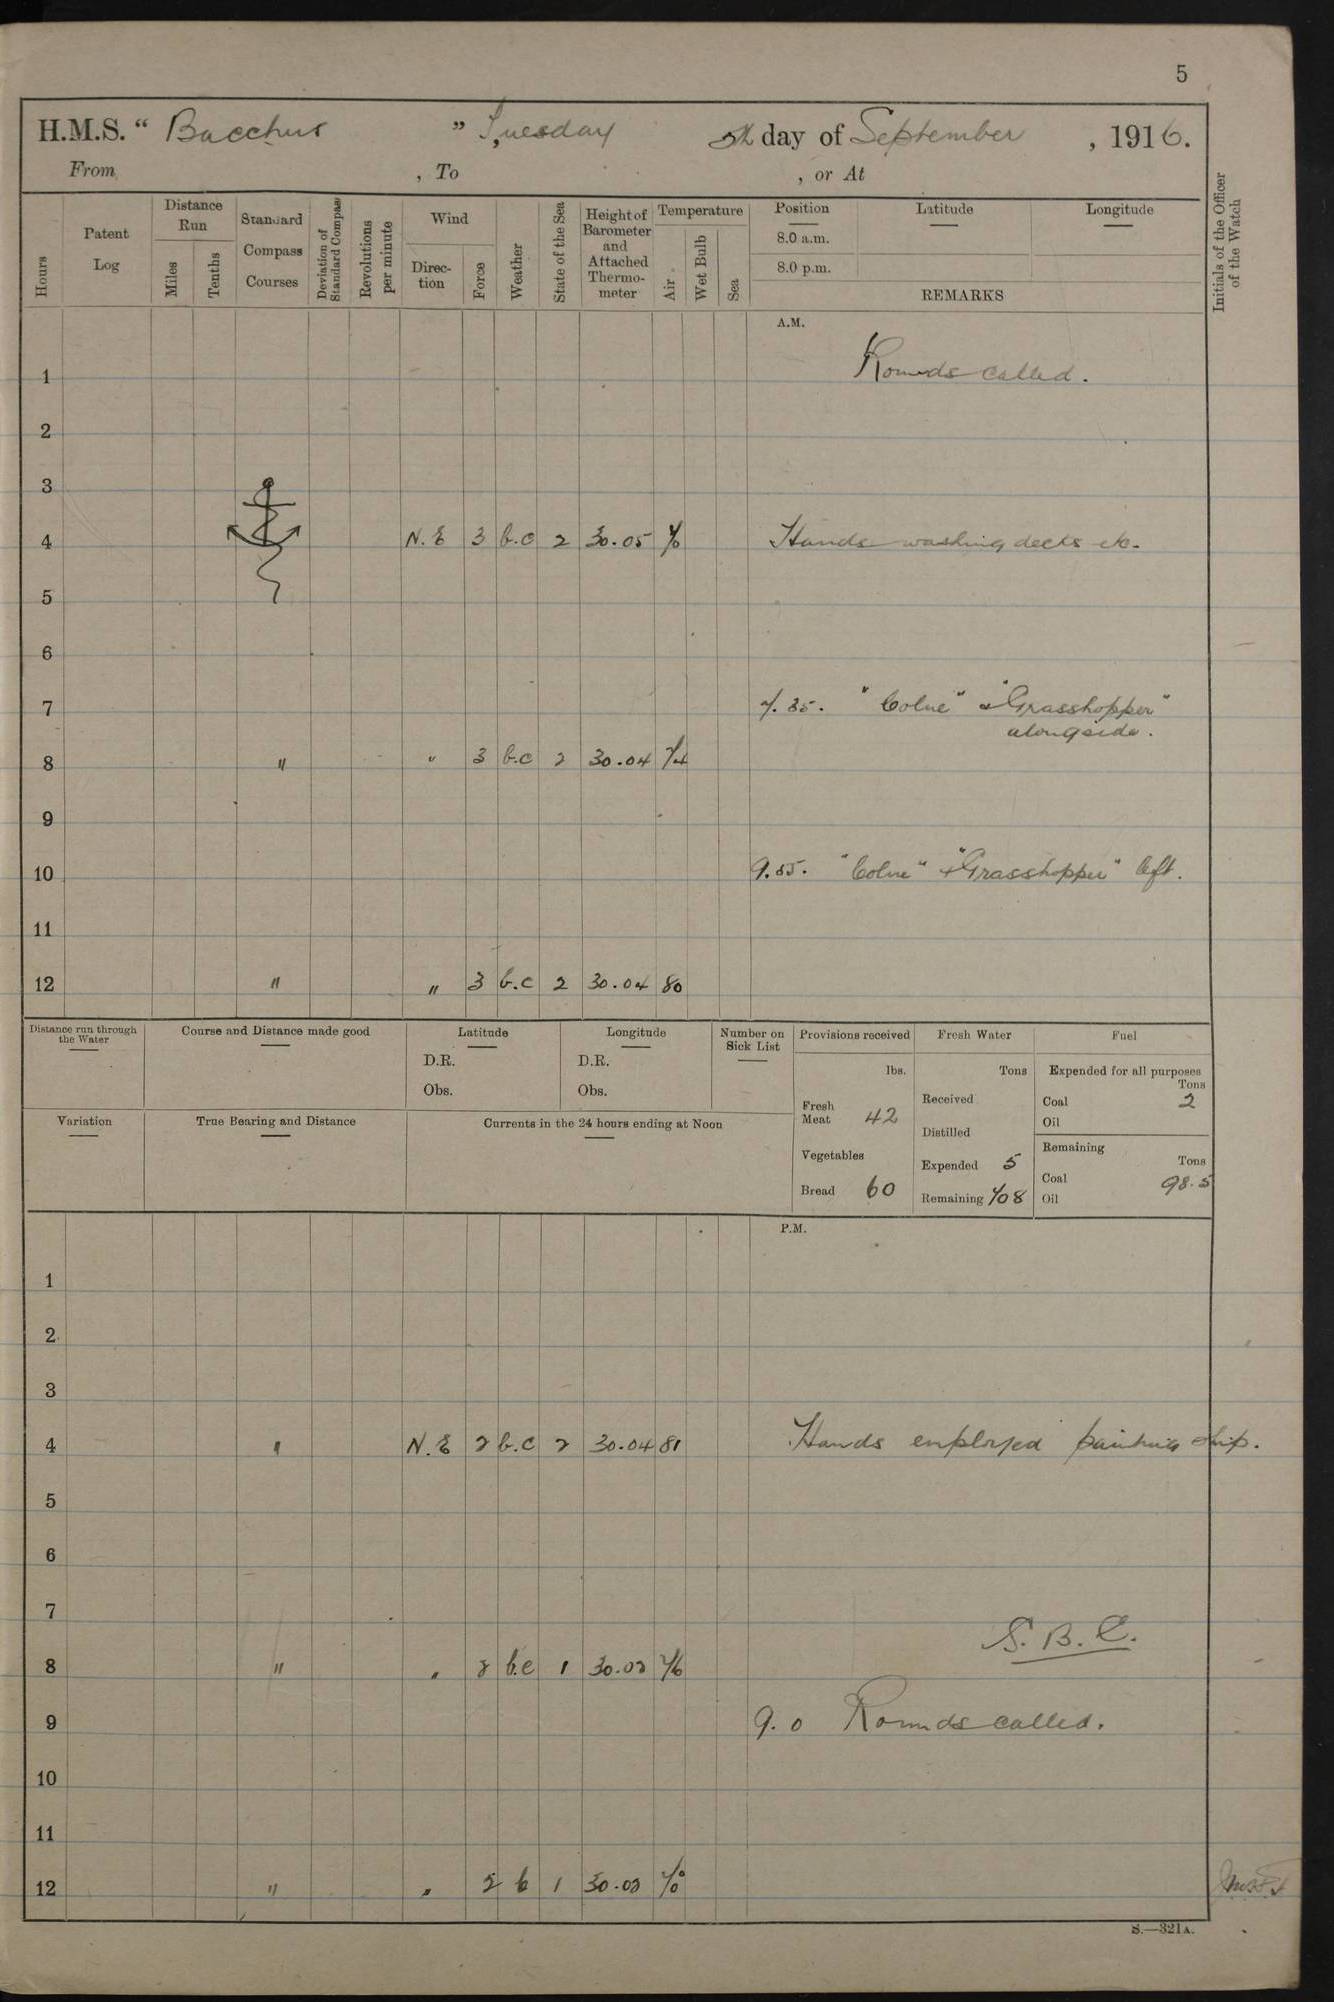 5
H.M.S. “ Bacchus ” Tuesday 5th day of September , 1916.
From , To , or At
Hours
Patent Log
Distance Run
Miles
Tenths
Standard Compass Courses
Deviation of Standard Compass
Revolutions per minute
Wind
Direction
Force
Weather
State of the Sea
Height of Barometer and Attached Thermometer
Temperature
Air
Wet Bulb
Sea
Position
Latitude
Longitude
8.0 a.m.
8.0 p.m.
REMARKS
Initials of the Officer of the Watch
A.M.
1 Rounds called.
2
3
4 N.E 3 b.c 2 30.05 70 Hands washing decks etc.
5
6
7 7.35. "Colne" & "Grasshopper"
alongside.
8 " " 3 b.c 2 30.04 74
9
10 9.35. "Colne" & "Grasshopper" left.
11
12 " " 3 b.c 2 30.04 80
Distance run through the Water
Course and Distance made good
Latitude
D.R.
Obs.
Longitude
D.R.
Obs.
Number on Sick List
Provisions received
lbs.
Fresh Meat 42
Vegetables
Bread 60
Fresh Water
Tons
Received
Distilled
Expended 5
Remaining 708
Fuel
Expended for all purposes
Tons
Coal 2
Oil
Remaining
Tons
Coal 98.5
Oil
Variation
True Bearing and Distance
Currents in the 24 hours ending at Noon
P.M.
1
2
3
4 " N.E 2 b.c 2 30.04 81 Hands employed painting ship.
5
6
7 S.B.C.
8 " " 2 b.c 1 30.03 76
9 9.0 Rounds called.
10
11
12 " " 2 b 1 30.03 70
S.—321A.